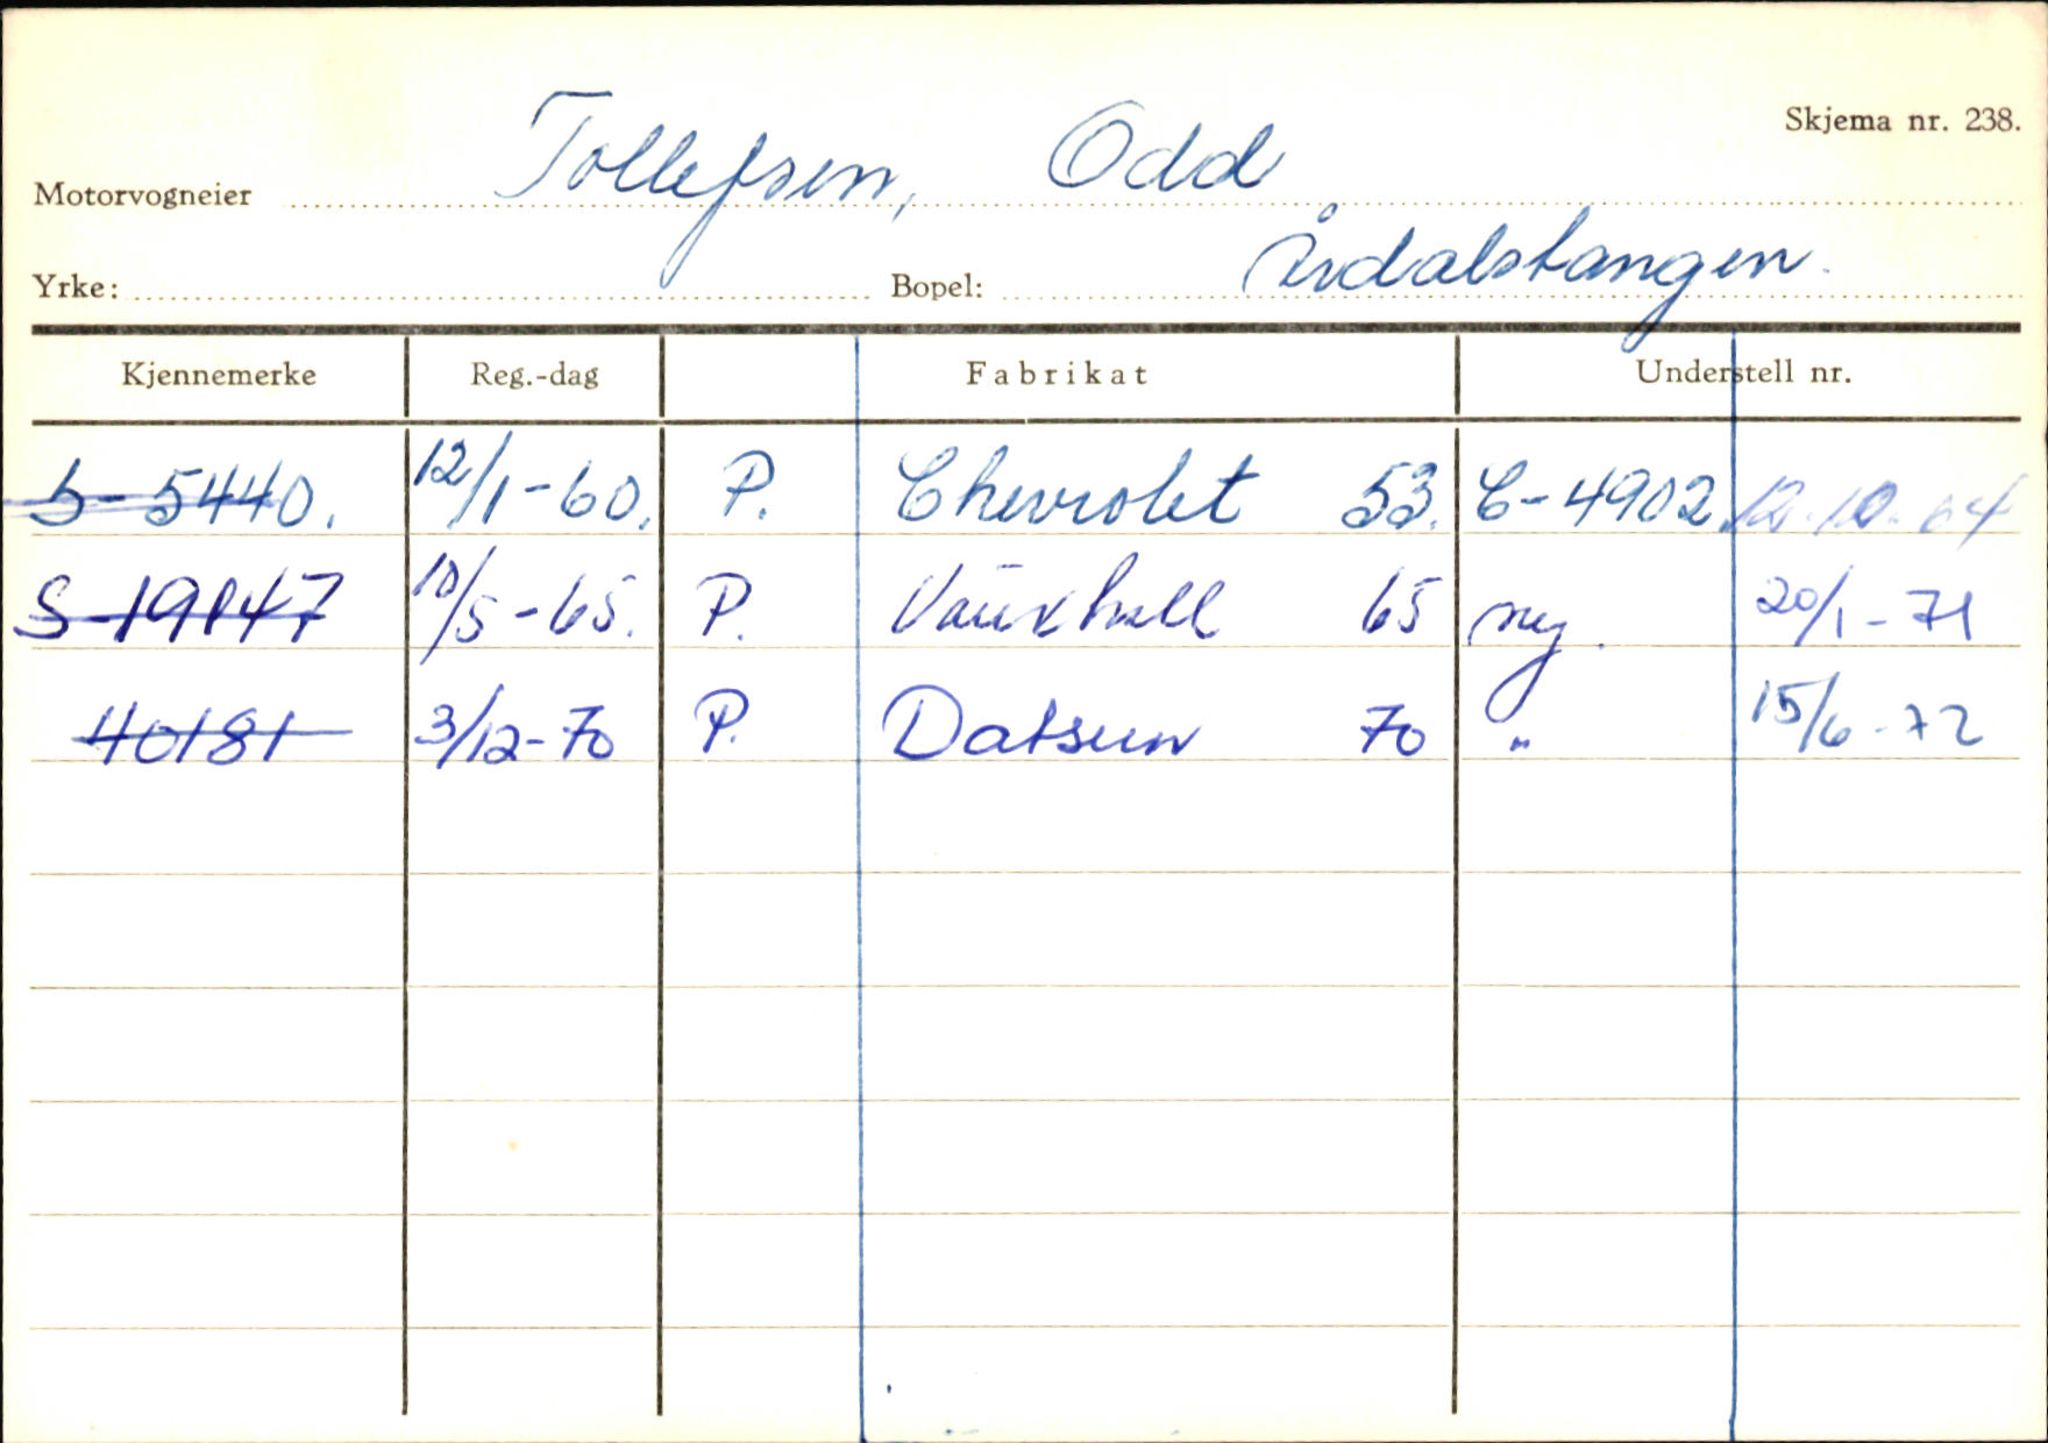 Skjema nr. 238.
Motorvogneier Tollefsen, Odd
Yrke: Bopel: Årdalstangen.
Kjennemerke Reg.-dag Fabrikat Understell nr.
S-5440. 12/1-60. P. Chevrolet 53. C-4902. 12.10.64
S-19147 10/5-65. P. Vauxhall 65 ny. 20/1-71
40181 3/12-70 P. Datsun 70 " 15/6-72